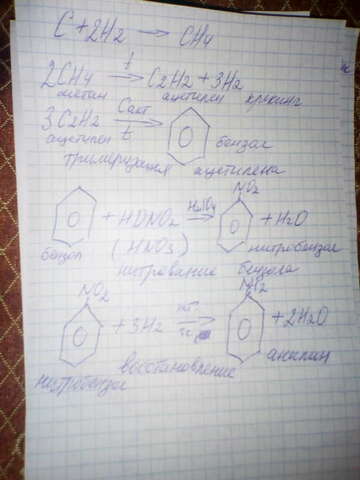 C + 2H2 → CH4
2CH4 t→ C2H2 + 3H2
метан ацетилен крекинг
3C2H2 Cакт t→ бензол
ацетилен
тримеризация ацетилена
NO2
+ HONO2 H2SO4→ + H2O
бензол (HNO3) нитробензол
нитрование бензола
NO2 NH2
+ 3H2 → + 2H2O
анилин
нитробензол восстановление